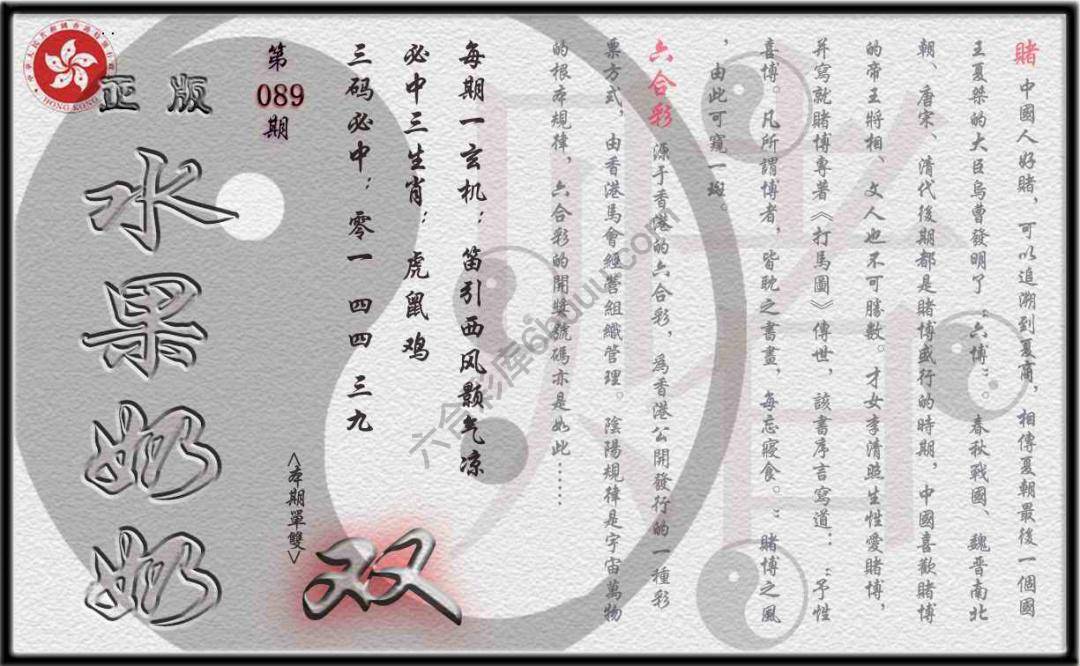 賭 中國人好賭，可以追溯到夏商，相傳夏朝最後一個國
王夏桀的大臣烏曹發明了“六博”。春秋戰國、魏晉南北
朝、唐宋、清代後期都是賭博盛行的時期，中國喜歡賭博
的帝王將相、文人也不可勝數。才女李清照生性愛賭博，
并寫就賭博專著《打馬圖》傳世，該書序言寫道：“予性
喜博。凡所謂博者，皆耽之書畫，每忘寢食。”賭博之風
，由此可窺一斑。
六合彩 源于香港的六合彩，為香港公開發行的一種彩
票方式，由香港馬會經營組織管理。陰陽規律是宇宙萬物
的根本規律，六合彩的開獎號碼亦是如此……
每期一玄机：笛引西风颢气凉
必中三生肖：虎鼠鸡
三码必中：零一 四四 三九
第
089
期
<本期單雙>
双
正版
水果奶奶
HONG KONG
六合彩库66uuu.com